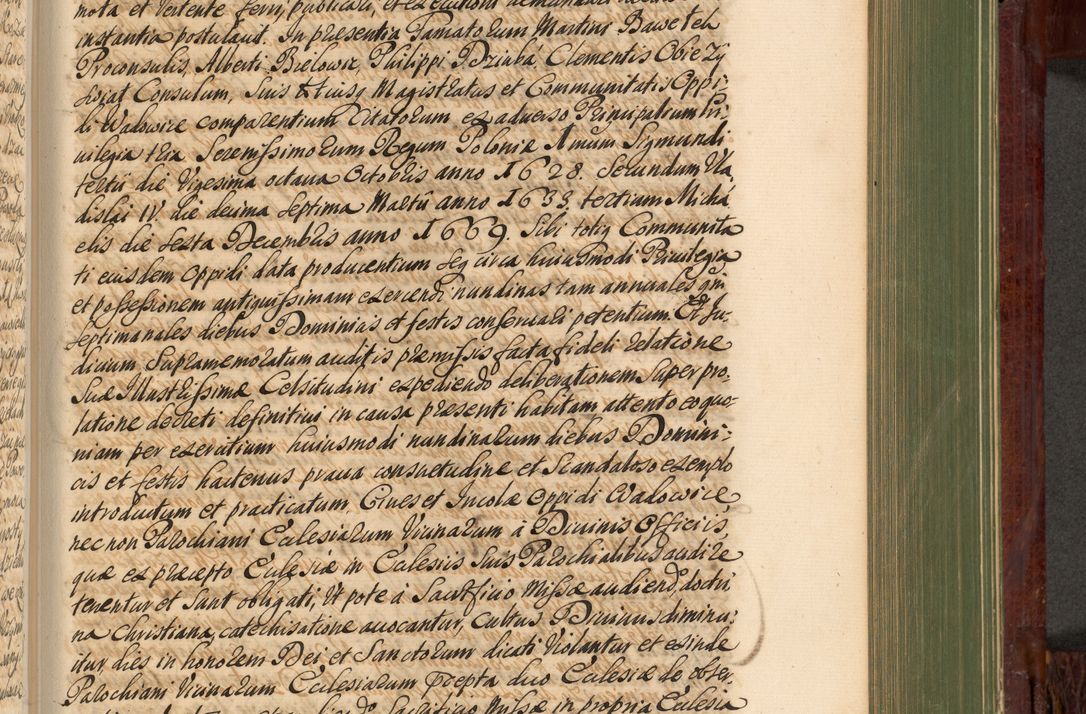 mota et Vertente ferri, publicari, et executioni demandari
instantia postulavit. In præsentia Famatorum Martini Bawełek
Proconsulis, Alberti Bielowic, Philippi Dziuba, Clementis Obiezy
swiat Consulum, suis totiusq Magistratus et Communitatis Oppi:
di Wadowice comparentium Citatorum ex adverso Principalium Pri:
uilegia tria Serenissimorum Regum Poloniæ Primum Sigmundi
tertii die Vigesima octaua Octobris anno 1628. Secundum Vla
dislai IV. die decima septima Martii anno 1633. tertium Micha
elis die sexta Decembris anno 1669. Sibi totiq Communita
ti eiusdem Oppidi data producentium seq circa huiusmodi Priuilegia
et possessionem antiquissimam exercendi nundinas tam annuales qm
septimanales diebus Dominicis et festis conseruari petentium. Et Iu-
dicium Supramemoratum auditis præmissis facta fideli relatione
Suæ Illustrissimæ Celsitudini expediendo deliberationem super pro-
latione decreti definitiui in causa præsenti habitam attento eo quo-
niam per exercitium huiusmodi nundinarum diebus Domini:
cis et festis hactenus praua consuetudine et Scandaloso exemplo
introductum et practicatum Ciues et Incolæ Oppidi Wadowice
nec non Parochiani Ecclesiarum Vicinarum à Diuinis Officiis
quæ ex præcepto Ecclesiæ in Ecclesiis suis Parochialibus audire
tenentur et sunt obligati, Ut pote à Sacrificio Missæ audiendo, doctri
na Christiana, catechisatione auocantur, Cultus Diuinus diminu:
itur dies in honorem Dei, et Sanctorum dicati Violantur et exinde
Parochiani Vicinarum Ecclesiarum præcepta duo Ecclesiæ de obser-
Sacrificio Missæ in propria Ecclesia